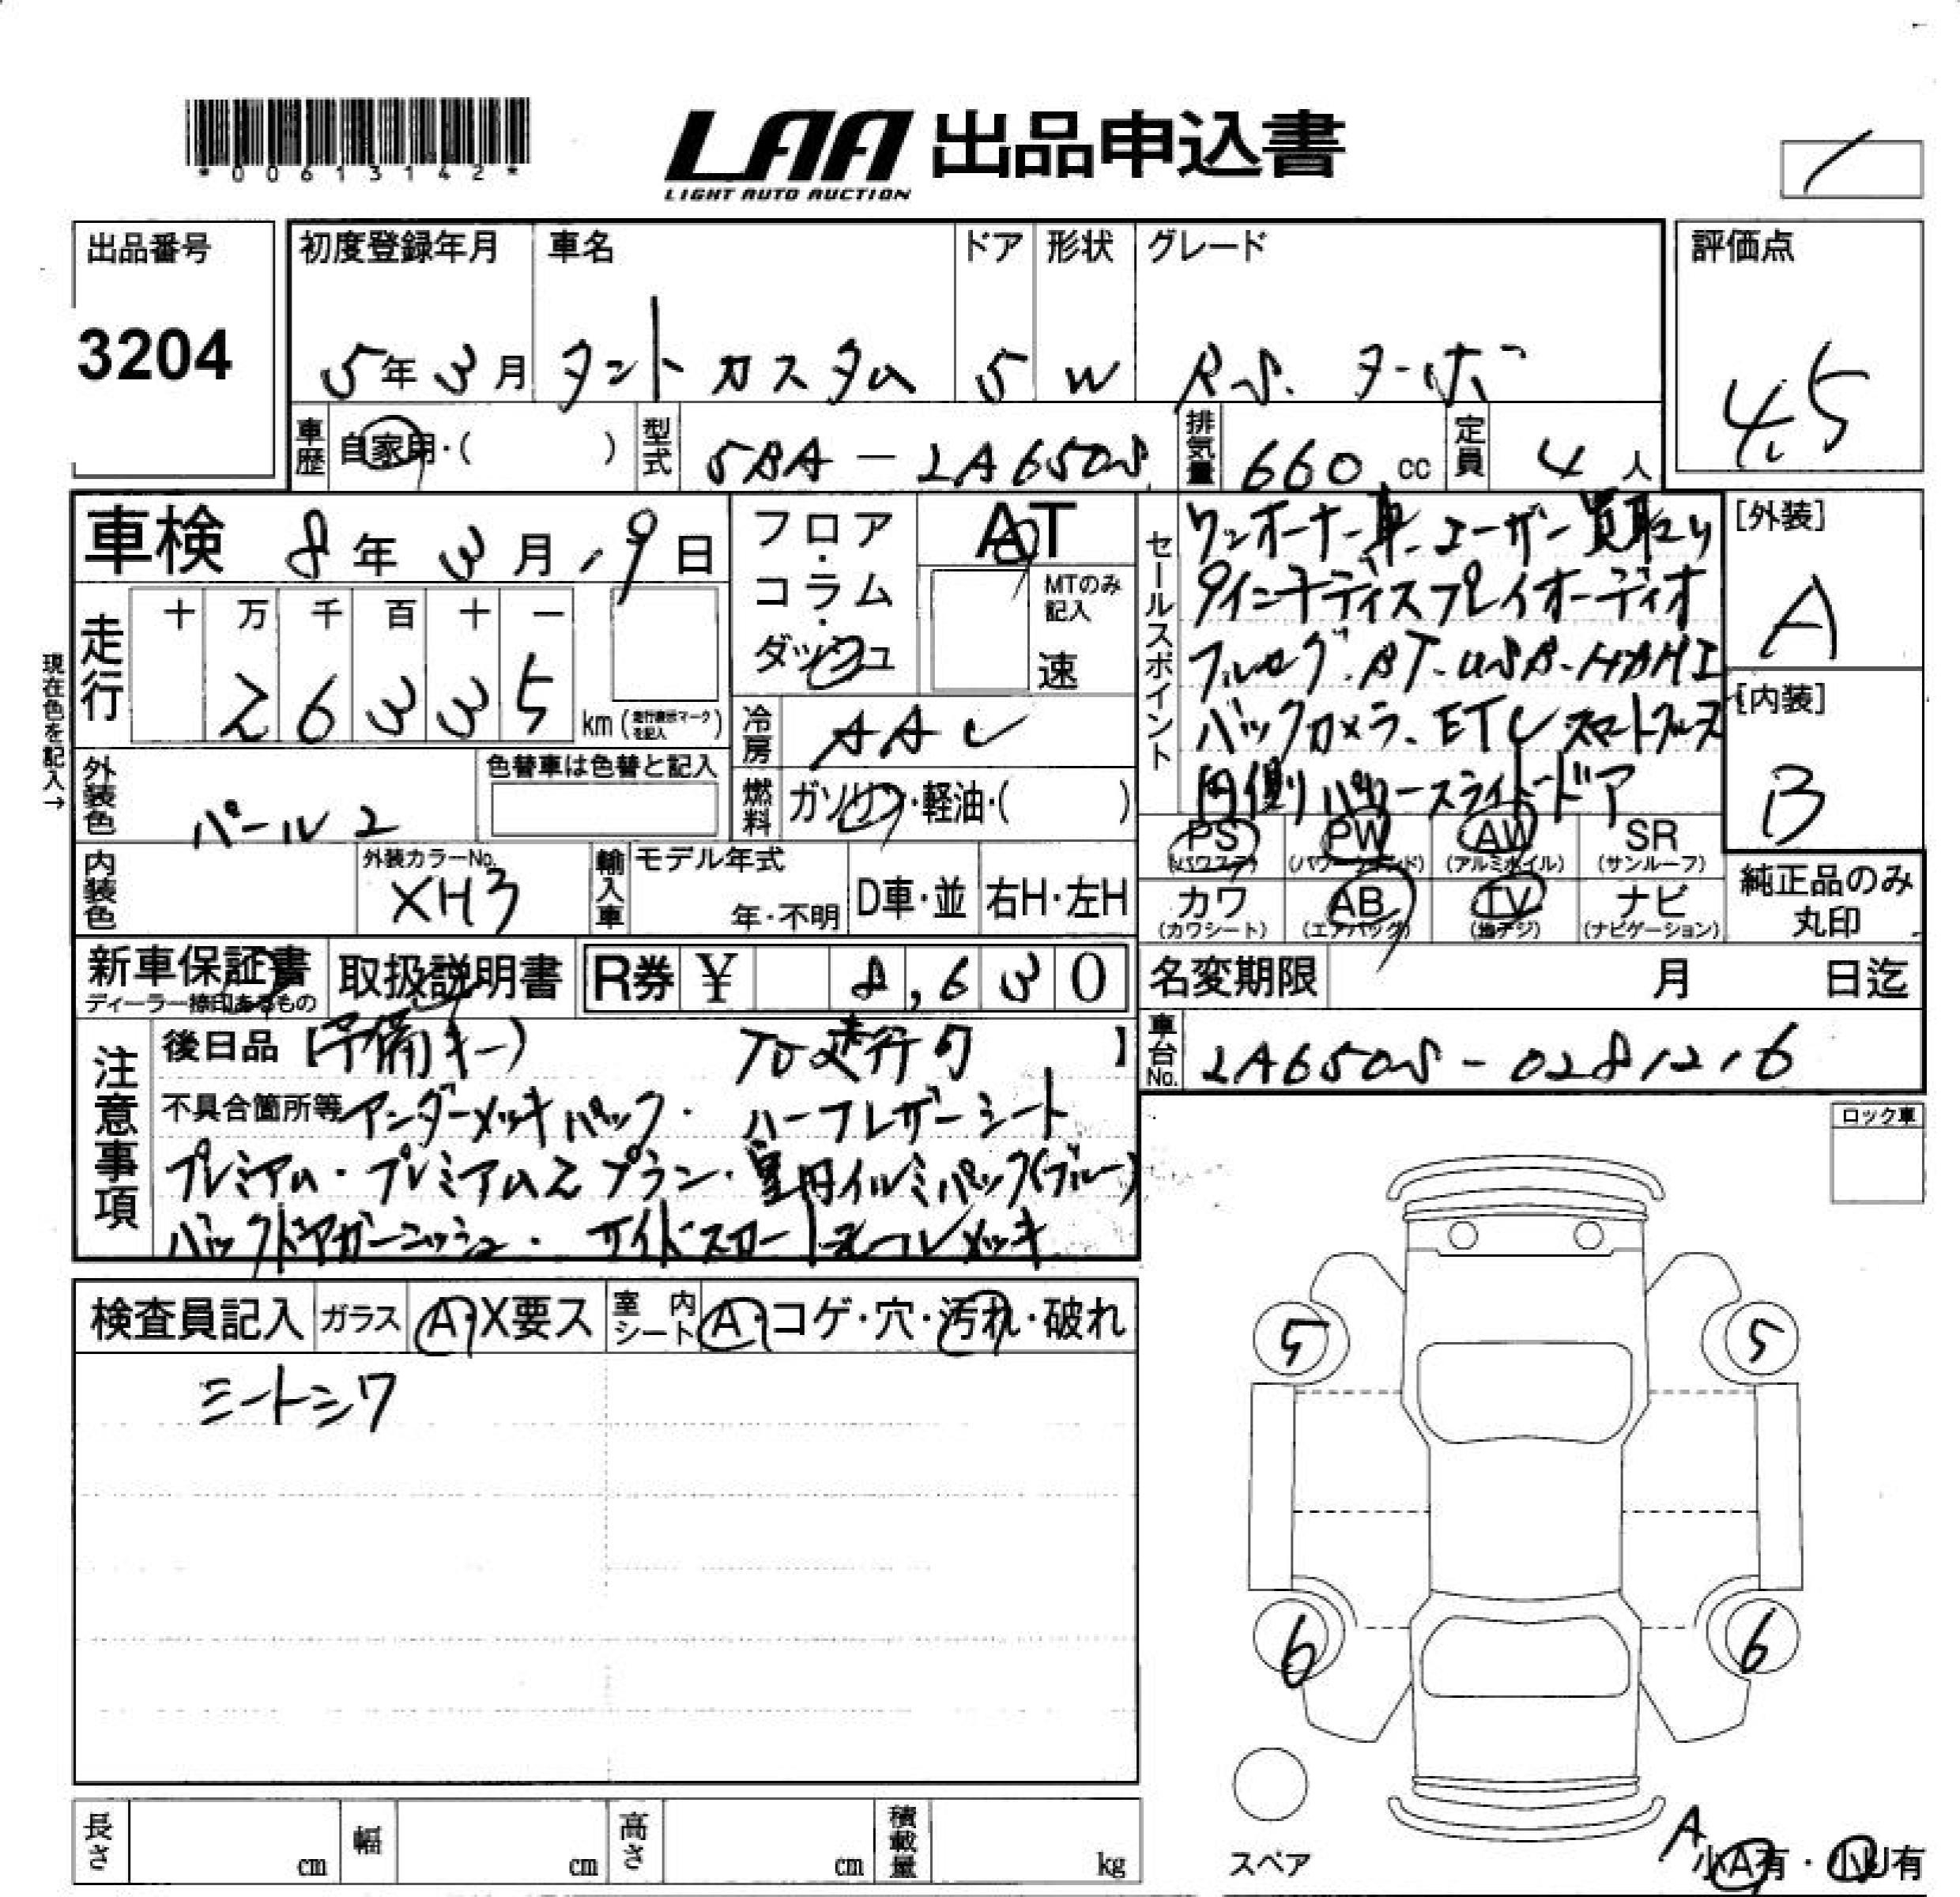 *00613142*
LAA 出品申込書
LIGHT AUTO AUCTION
出品番号
3204
初度登録年月 車名 ドア 形状 グレード 評価点
5年3月 タントカスタム 5 W RS. ターボ 4.5
車歴 自家用・( ) 型式 5BA-LA650S 排気量 660 cc 定員 4人
車検 8年3月19日
フロア・コラム・ダッシュ
AT
MTのみ記入
速
走行 十 万 千 百 十 一
26335 km (走行表示マークを記入)
現在色を記入→
冷房 AAC
燃料 ガソリン・軽油・( )
外装色 パール2
色替車は色替と記入
内装色
外装カラーNo. XH3
輸入車 モデル年式 年・不明 D車・並 右H・左H
セールスポイント
ワンオーナー車.ユーザー買取り
9インチディスプレイオーディオ
フルセグ.BT.USB.HDMI
バックカメラ.ETC
パワースライドドア
[外装] A
[内装] B
PS (パワステ) PW (パワーウインド) AW (アルミホイル) SR (サンルーフ)
カワ (カワシート) AB (エアバッグ) TV (地デジ) ナビ (ナビゲーション)
純正品のみ丸印
新車保証書 ディーラー捺印あるもの 取扱説明書 R券 ¥ 8,630
名変期限 月 日迄
車台No. LA650S-0281216
注意事項
後日品【予備キー) 走行 】
不具合箇所等 アンダーメッキパック・ハーフレザーシート
プレミアム・プレミアム2プラン・室内イルミパック(ブルー)
バックドアガーニッシュ・サイドストーン メッキ
ロック車
検査員記入 ガラス A・X要ス 室内シート A・コゲ・穴・汚れ・破れ
シートシワ
5 5
6 6
スペア
A
小A有・小U有
長さ cm 幅 cm 高さ cm 積載量 kg